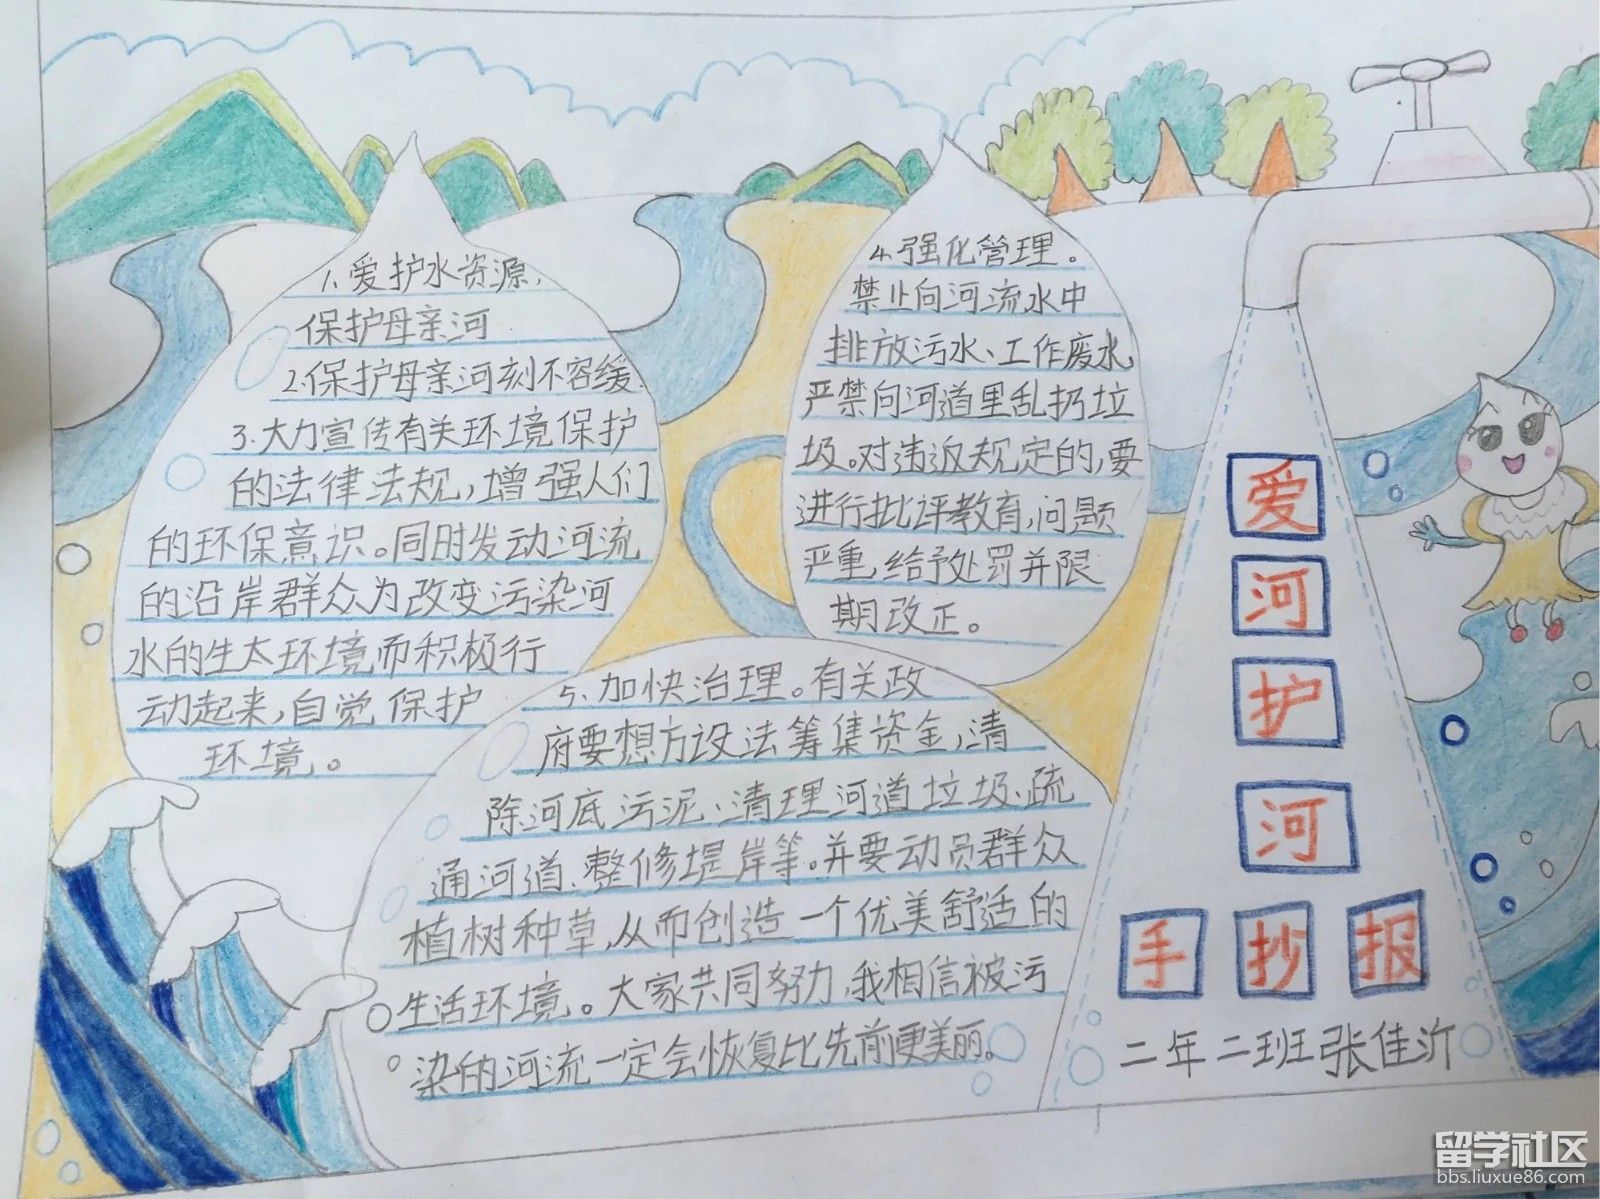 1.爱护水资源,
保护母亲河
2.保护母亲河刻不容缓.
3.大力宣传有关环境保护
的法律法规,增强人们
的环保意识。同时发动河流
的沿岸群众为改变污染河
水的生态环境而积极行
动起来,自觉保护
环境。
4.强化管理。
禁止向河流水中
排放污水、工作废水
严禁向河道里乱扔垃
圾。对违返规定的,要
进行批评教育,问题
严重,给予处罚并限
期改正。
5.加快治理。有关政
府要想方设法筹集资金,清
除河底污泥、清理河道垃圾、疏
通河道、整修堤岸等。并要动员群众
植树种草,从而创造一个优美舒适的
生活环境。大家共同努力,我相信被污
染的河流一定会恢复比先前更美丽。
爱
河
护
河
手抄报
二年二班张佳沂
留学社区
bbs.liuxue86.com